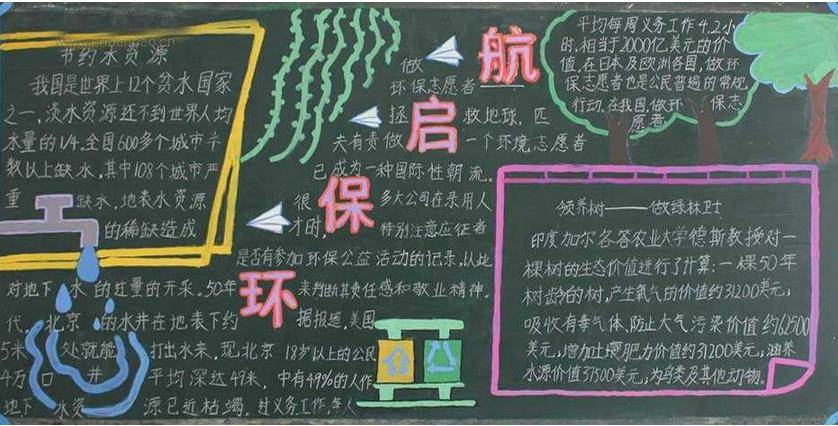 节约水资源
我国是世界上12个贫水国家
之一,淡水资源还不到世界人均
水量的1/4.全国600多个城市半
数以上缺水,其中108个城市严
重缺水,地表水资源
的稀缺造成
对地下水的过量的开采.50年
代,北京的水井在地表下约
5米处就能打出水来,现北京
4万口井平均深达49米,
地下水资源已近枯竭.
环保启航
做环保志愿者
拯救地球,匹
夫有责做一个环境志愿者
已成为一种国际性朝流.
很多大公司在录用人
才时,特别注意应征者
是否有参加环保公益活动的记录,以此
来判断其责任感和敬业精神.
据报道,美国
18岁以上的公民
中有49%的人作
过义务工作,每人
平均每周义务工作4.2小
时,相当于2000亿美元的价
值,在日本及欧洲各国,做环
保志愿者也是公民普遍的常规
行动,在我国,做环保志
愿者
领养树——做绿林卫士
印度加尔各答农业大学德斯教授对一
棵树的生态价值进行了计算:一棵50年
树龄的树,产生氧气的价值约31200美元;
吸收有毒气体、防止大气污染价值约62500
美元,增加土壤肥力价值约31200美元,涵养
水源价值37500美元,为鸟类及其他动物.